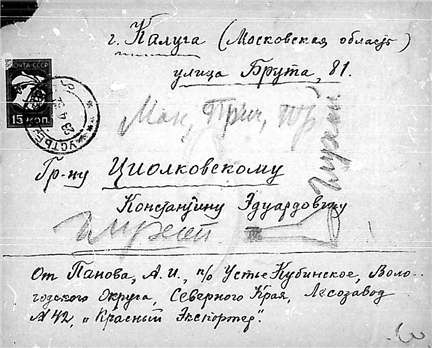 г. Калуга (Московская область)
улица Брута, 81.
ПОЧТА СССР
15 КОП.
УСТЬЕ
Гр-ну Циолковскому
Константину Эдуардовичу
От Панова, А. И., п/о Устье Кубинское, Воло-
годского Округа, Северного Края, Лесозавод
№ 42, „Красный Экспортер".